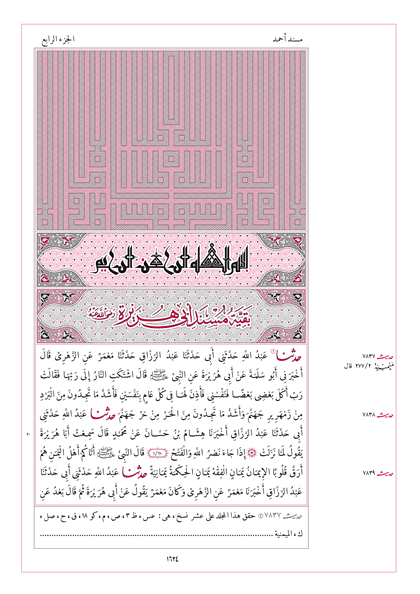 مسند أحمد
الجزء الرابع
بسم الله الرحمن الرحيم
بقية مسند أبي هريرة رضي الله عنه
حدثنا عَبْدُ اللَّهِ حَدَّثَنِي أَبِي حَدَّثَنَا عَبْدُ الرَّزَّاقِ حَدَّثَنَا مَعْمَرٌ عَنِ الزُّهْرِيِّ قَالَ
أَخْبَرَنِي أَبُو سَلَمَةَ عَنْ أَبِي هُرَيْرَةَ عَنِ النَّبِيِّ ﷺ قَالَ اشْتَكَتِ النَّارُ إِلَى رَبِّهَا فَقَالَتْ
رَبِّ أَكَلَ بَعْضِي بَعْضًا فَنَفِّسْنِي فَأَذِنَ لَهَا فِي كُلِّ عَامٍ بِنَفَسَيْنِ فَأَشَدُّ مَا تَجِدُونَ مِنَ الْبَرْدِ
مِنْ زَمْهَرِيرِ جَهَنَّمَ وَأَشَدُّ مَا تَجِدُونَ مِنَ الْحَرِّ مِنْ حَرِّ جَهَنَّمَ حدثنا عَبْدُ اللَّهِ حَدَّثَنِي
أَبِي حَدَّثَنَا عَبْدُ الرَّزَّاقِ أَخْبَرَنَا هِشَامُ بْنُ حَسَّانَ عَنْ مُحَمَّدٍ قَالَ سَمِعْتُ أَبَا هُرَيْرَةَ
يَقُولُ لَمَّا نَزَلَتْ إِذَا جَاءَ نَصْرُ اللَّهِ وَالْفَتْحُ قَالَ النَّبِيُّ ﷺ أَتَاكُمْ أَهْلُ الْيَمَنِ هُمْ
أَرَقُّ قُلُوبًا الإِيمَانُ يَمَانٍ الْفِقْهُ يَمَانٍ الْحِكْمَةُ يَمَانِيَةٌ حدثنا عَبْدُ اللَّهِ حَدَّثَنِي أَبِي حَدَّثَنَا
عَبْدُ الرَّزَّاقِ أَخْبَرَنَا مَعْمَرٌ عَنِ الزُّهْرِيِّ وَكَانَ مَعْمَرٌ يَقُولُ عَنْ أَبِي هُرَيْرَةَ ثُمَّ قَالَ بَعْدُ عَنِ
حديث ٧٨٣٧
ميمنية ٢/٢٧٧ قال
حديث ٧٨٣٨
حديث ٧٨٣٩
حديث ٧٨٣٧ حقق هذا المجلد على عشر نسخ ، هي : عس ، ظ ٣ ، ص ، م ، كو ١٨ ، ق ، ح ، صل ،
ك ، الميمنية
١٦٢٤